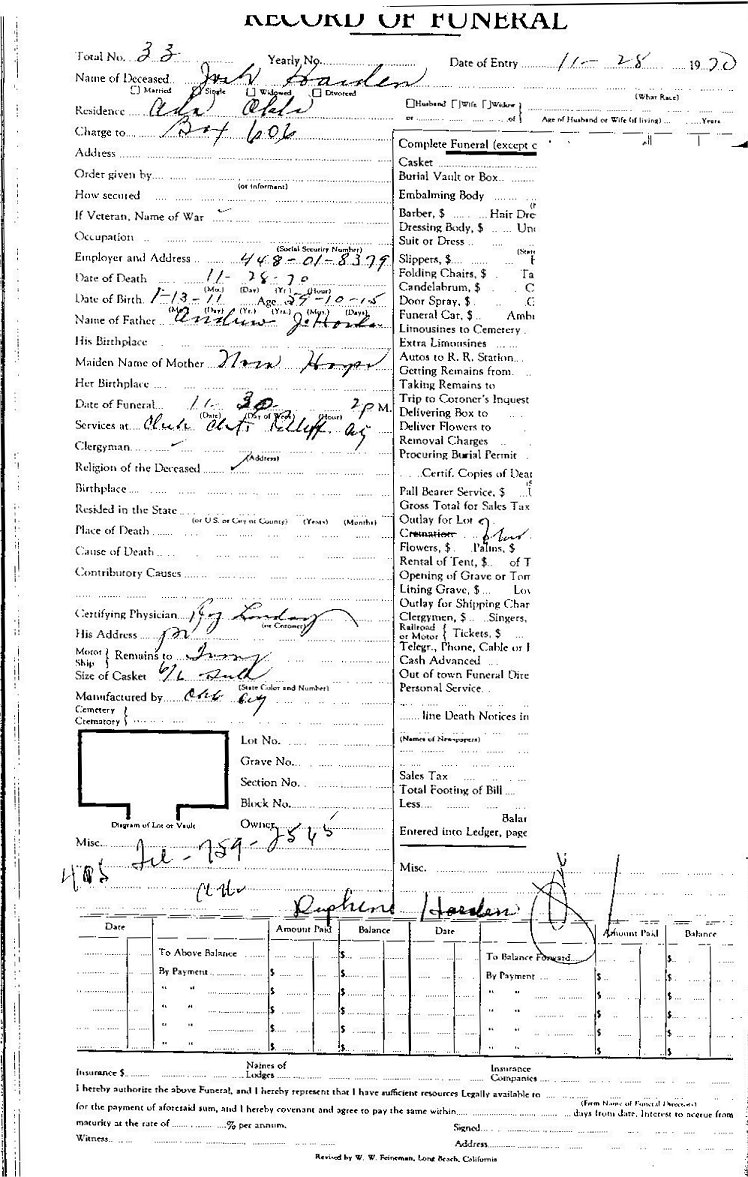 RECORD OF FUNERAL
Total No. 33 Yearly No. Date of Entry 11-28 1970
Name of Deceased Josh Harden
Married Single Widowed Divorced
(What Race)
Residence Ada Okla
Husband Wife Widow
or of Age of Husband or Wife (if living) Years
Charge to Box 606
Complete Funeral (except c
Address
Casket
Burial Vault or Box
Order given by
(or Informant)
Embalming Body
How secured
Barber, $ Hair Dre
If Veteran, Name of War ✓
Dressing Body, $ Und
Occupation
Suit or Dress
(Social Security Number)
Employer and Address 448-01-8379
Slippers, $
Date of Death 11-28-70
(Mo.) (Day) (Yr.) (Hour)
Folding Chairs, $ Ta
Candelabrum, $ C
Date of Birth 1-13-11 Age 59-10-15
(Mo.) (Day) (Yr.) (Yrs.) (Mos.) (Days)
Door Spray, $
Name of Father Andrew J. Harden
Funeral Car, $ Ambu
Limousines to Cemetery
His Birthplace
Extra Limousines
Maiden Name of Mother Nora
Autos to R. R. Station
Getting Remains from
Her Birthplace
Taking Remains to
Date of Funeral 11- 30 2 P M.
(Date) (Day of Week) (Hour)
Trip to Coroner's Inquest
Delivering Box to
Services at
Deliver Flowers to
Clergyman ✓
Removal Charges
(Address)
Religion of the Deceased ✓
Procuring Burial Permit
Certif. Copies of Deat
Birthplace
Pall Bearer Service, $
Resided in the State
Gross Total for Sales Tax
(or U.S. or City or County) (Years) (Months)
Outlay for Lot
Place of Death
Cremation
Cause of Death
Flowers, $ Palms, $
Rental of Tent, $ of T
Contributory Causes
Opening of Grave or Tom
Lining Grave, $ Lov
Outlay for Shipping Char
Certifying Physician
(or Coroner)
Clergymen, $ Singers,
Railroad
or Motor Tickets, $
His Address
Telegr., Phone, Cable or
Motor
Ship Remains to
Cash Advanced
Size of Casket 6/6
Out of town Funeral Dire
(State Color and Number)
Personal Service
Manufactured by Okla City
Cemetery
Crematory
line Death Notices in
Lot No.
(Names of Newspapers)
Grave No.
Section No.
Sales Tax
Total Footing of Bill
Block No.
Less
Owner
Balan
Diagram of Lot or Vault
Entered into Ledger, page
Misc. Tel - 759-2545
Misc.
405
Daphene Harden
Date Amount Paid Balance Date Amount Paid Balance
To Above Balance $ $ To Balance Forward $
By Payment $ $ By Payment $ $
" " $ $ " " $ $
" " $ $ " " $ $
" " $ $ " " $ $
" " $ $ " " $ $
Insurance $ Names of Lodges Insurance Companies
I hereby authorize the above Funeral, and I hereby represent that I have sufficient resources Legally available to
(Firm Name of Funeral Directors)
for the payment of aforesaid sum, and I hereby covenant and agree to pay the same within days from date, Interest to accrue from
maturity at the rate of % per annum. Signed
Witness Address
Revised by W. W. Feineman, Long Beach, California